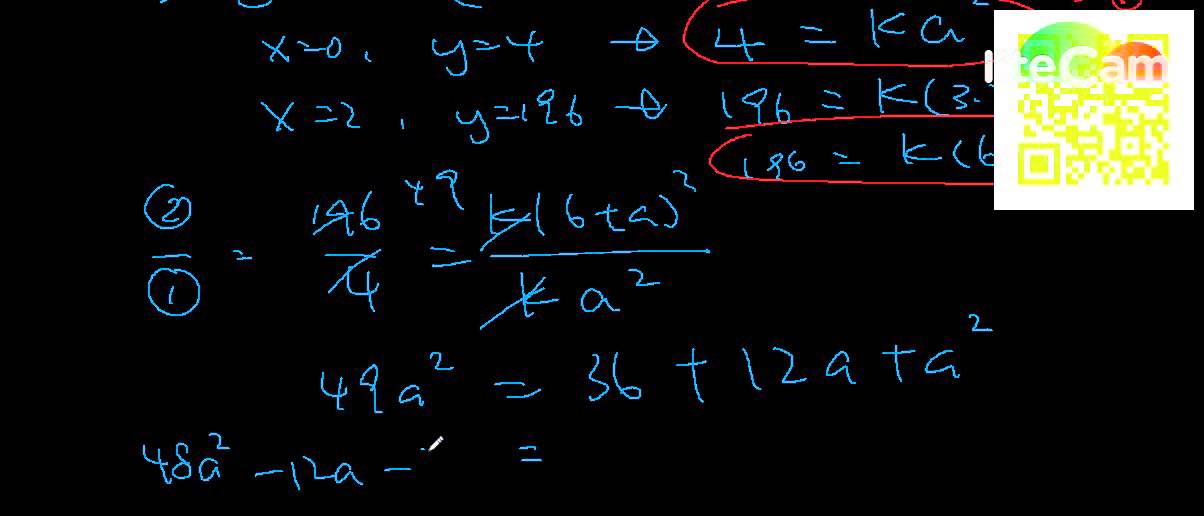 x=0, y=4 → 4 = ka
x=2, y=196 → 196 = k(3.
196 = k(6
②/① = 196/4 49 = k(6+a)²/k a²
49a² = 36 + 12a + a²
48a² - 12a - =
teCam